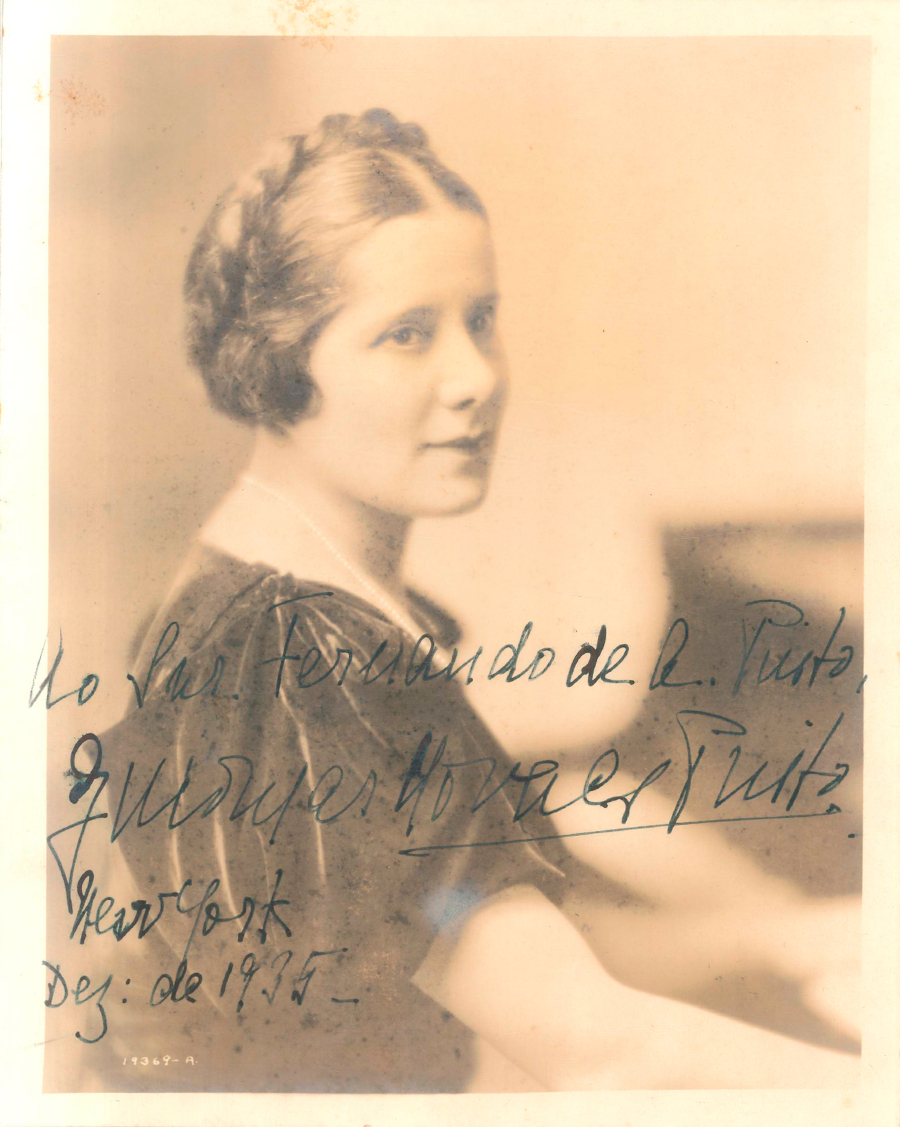 Ao Snr. Fernando de A. Pinto,
Guiomar Novaes Pinto.
New York
Dez: de 1935_
19369-A.